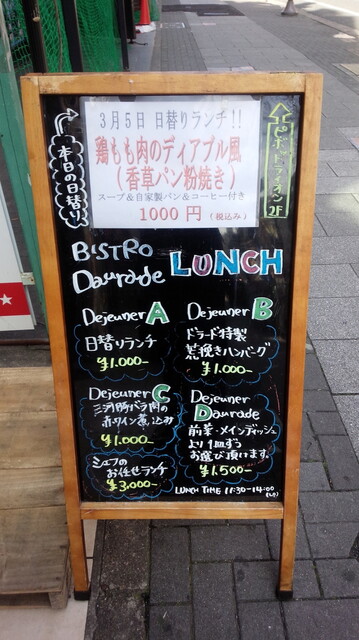 3月5日 日替りランチ!!
鶏もも肉のディアブル風
(香草パン粉焼き)
スープ&自家製パン&コーヒー付き
1000円 (税込み)
本日の日替り
ピボットライオン2F
BISTRO
Daurade
LUNCH
Dejeuner A
日替りランチ
¥1.000-
Dejeuner B
ドラード特製
荒挽きハンバーグ
¥1.000-
Dejeuner C
三河豚バラ肉の
赤ワイン煮込み
¥1.000-
Dejeuner
Daurade
前菜・メインディッシュ
より1皿ずつ
お選び頂けます。
¥1.500-
シェフの
お任せランチ
¥3.000-
LUNCH TIME 11:30-14:00
(L.O)